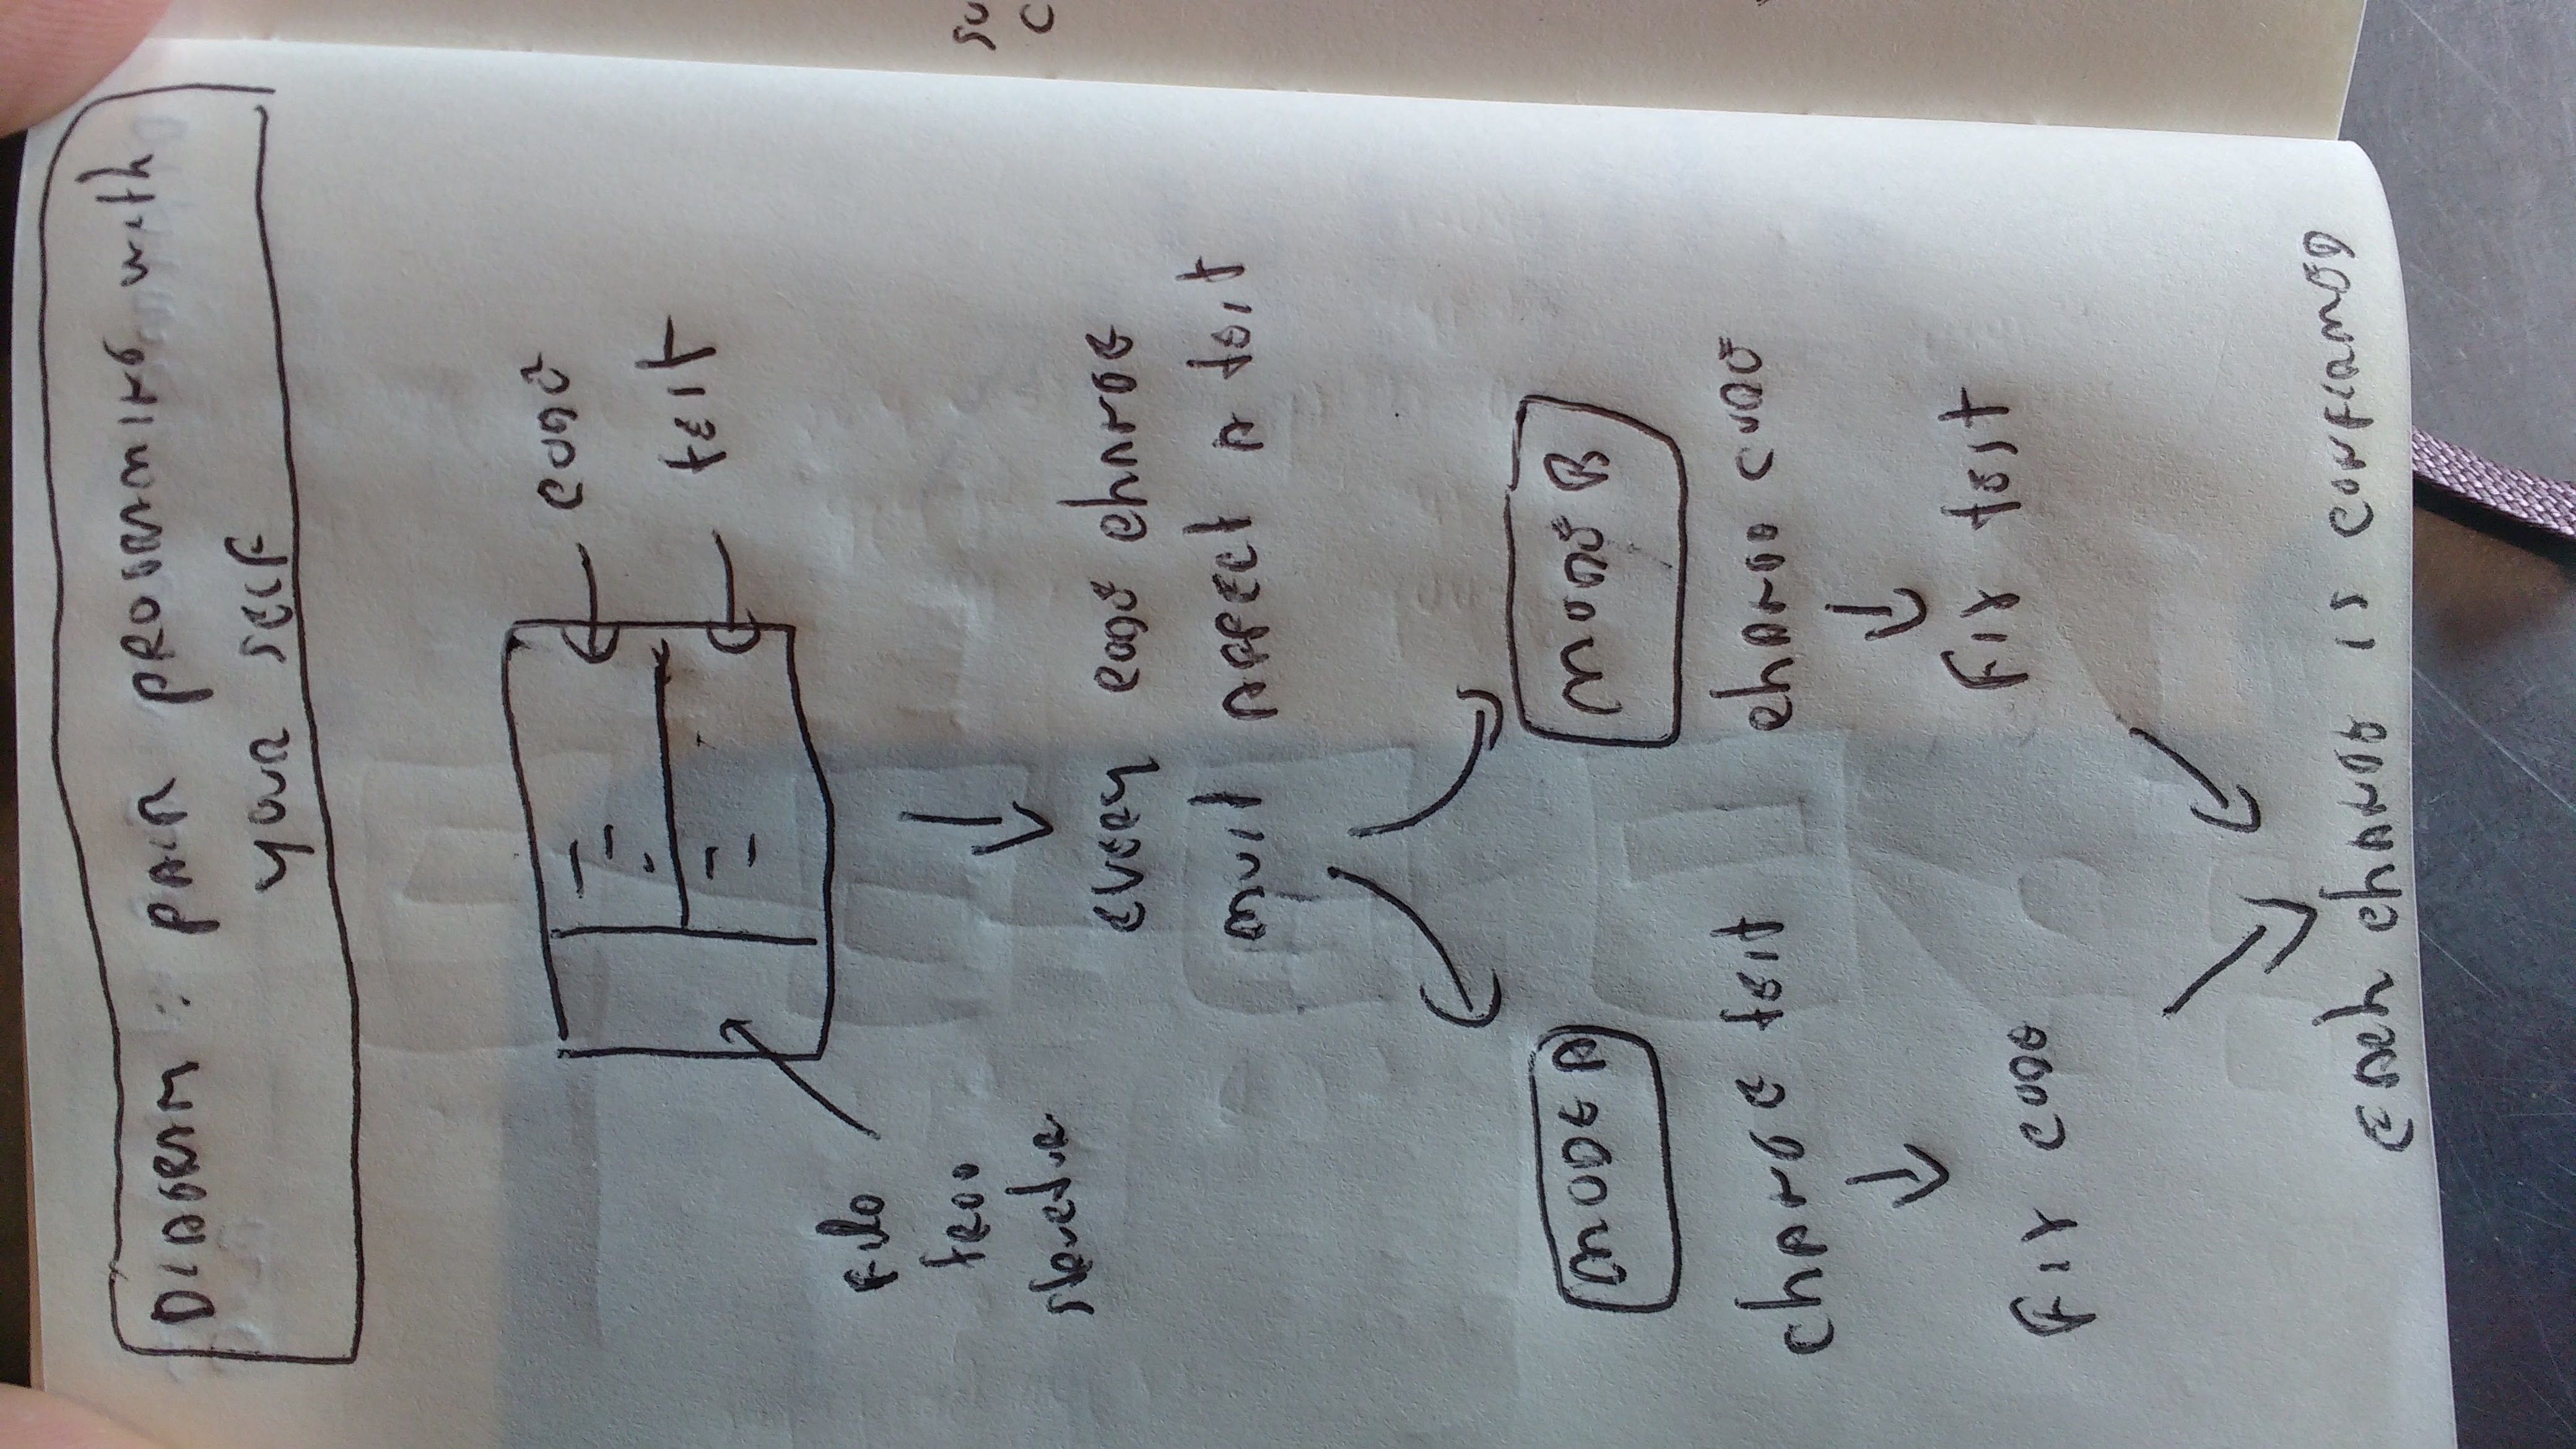 DIAGRAM: PAIR PROGRAMMING with
YOUR SELF
code
test
File
tree
structure
EVERY code change
must AFFECT A test
MODE A
MODE B
change test
change code
FIX code
FIX test
Each change is CONFIRMED